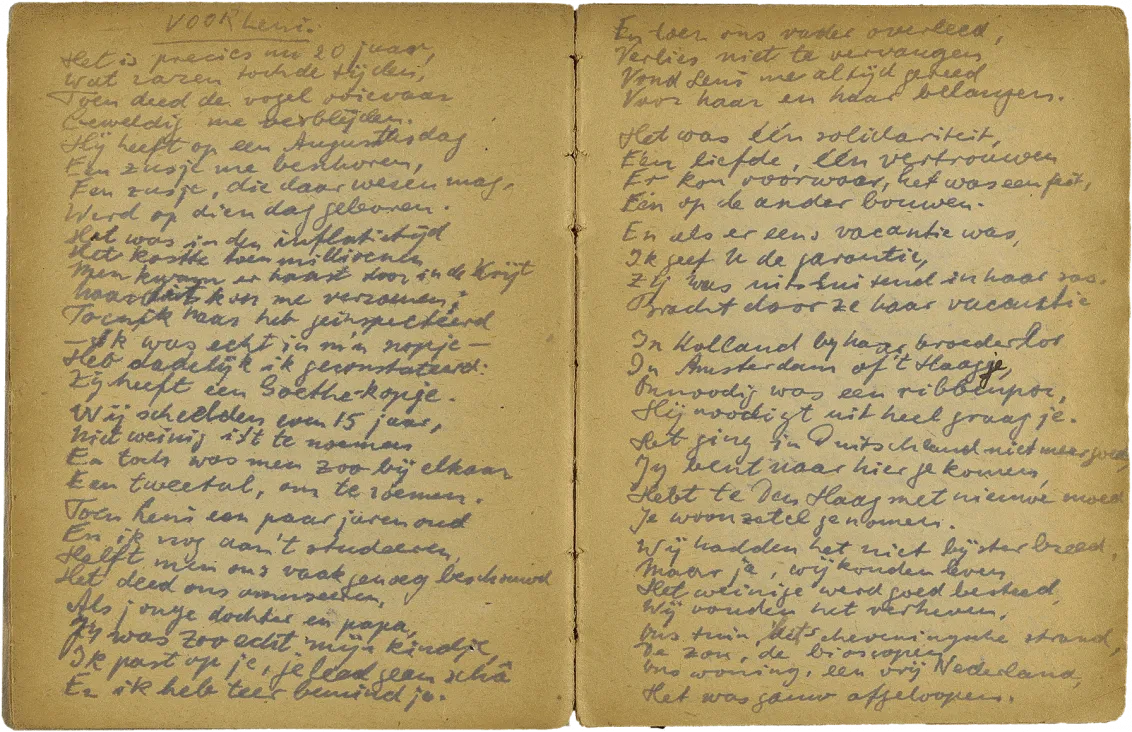 VOOR Leni.
Het is precies nu 20 jaar,
Wat razen toch de tijden,
Toen deed de vogel ooievaar
Geweldig me verblijden.
Hij heeft op een Augustusdag
Een zusje me beschoren,
Een zusje, die daar wesen mag,
Werd op dien dag geboren.
Het was in den inflatietijd
Het kostte toen millioenen
Men kwam er haast door in de krijt
kon me verzoenen;
Toen ik haar heb geïnspecteerd
– Ik was echt in m'n nopje –
Heb dadelijk ik geconstateerd:
Zij heeft een Goethe-kopje.
Wij scheelden een 15 jaar,
Niet weinig is't te noemen
En toch was men zoo bij elkaar
Een tweetal, om te roemen.
Toen Leni een paar jaren oud
En ik nog aan't studeeren,
Heeft men ons vaak genoeg beschouwd
Het deed ons amuseeren,
Als jonge dochter en papa,
Jij was zoo echt mijn kindje,
Ik past op je, je leed geen schâ
En ik heb teer bemind je.
En toen ons vader overleed,
Verlies niet te vervangen
Vond Leni me altijd gereed
Voor haar en haar belangen.
Het was één solidariteit,
Eén liefde, één vertrouwen
Er kon voorwaar, het was een feit,
Eén op de ander bouwen.
En als er eens vacantie was,
Ik geef U de garantie,
Zij was uitsluitend in haar ras.
Bracht door ze haar vacantie
In Holland by haar broederlor
In Amsterdam of 't Haagje,
Onnoodig was een ribbenpor,
Hij noodigt uit heel graag je.
Het ging in Duitschland niet meer goed,
Jy bent naar hier gekomen,
Hebt te Den Haag met nieuwe moed
Je woonzetel genomen.
Wij hadden het niet bijster breed,
Maar ja, wij konden leven
Het weinige werd goed besteed,
Wij vonden het verheven,
Ons tuin, het Scheveningsche strand,
De zon, de bioscopen
Ons woning, een vrij Nederland,
Het was gauw afgeloopen.